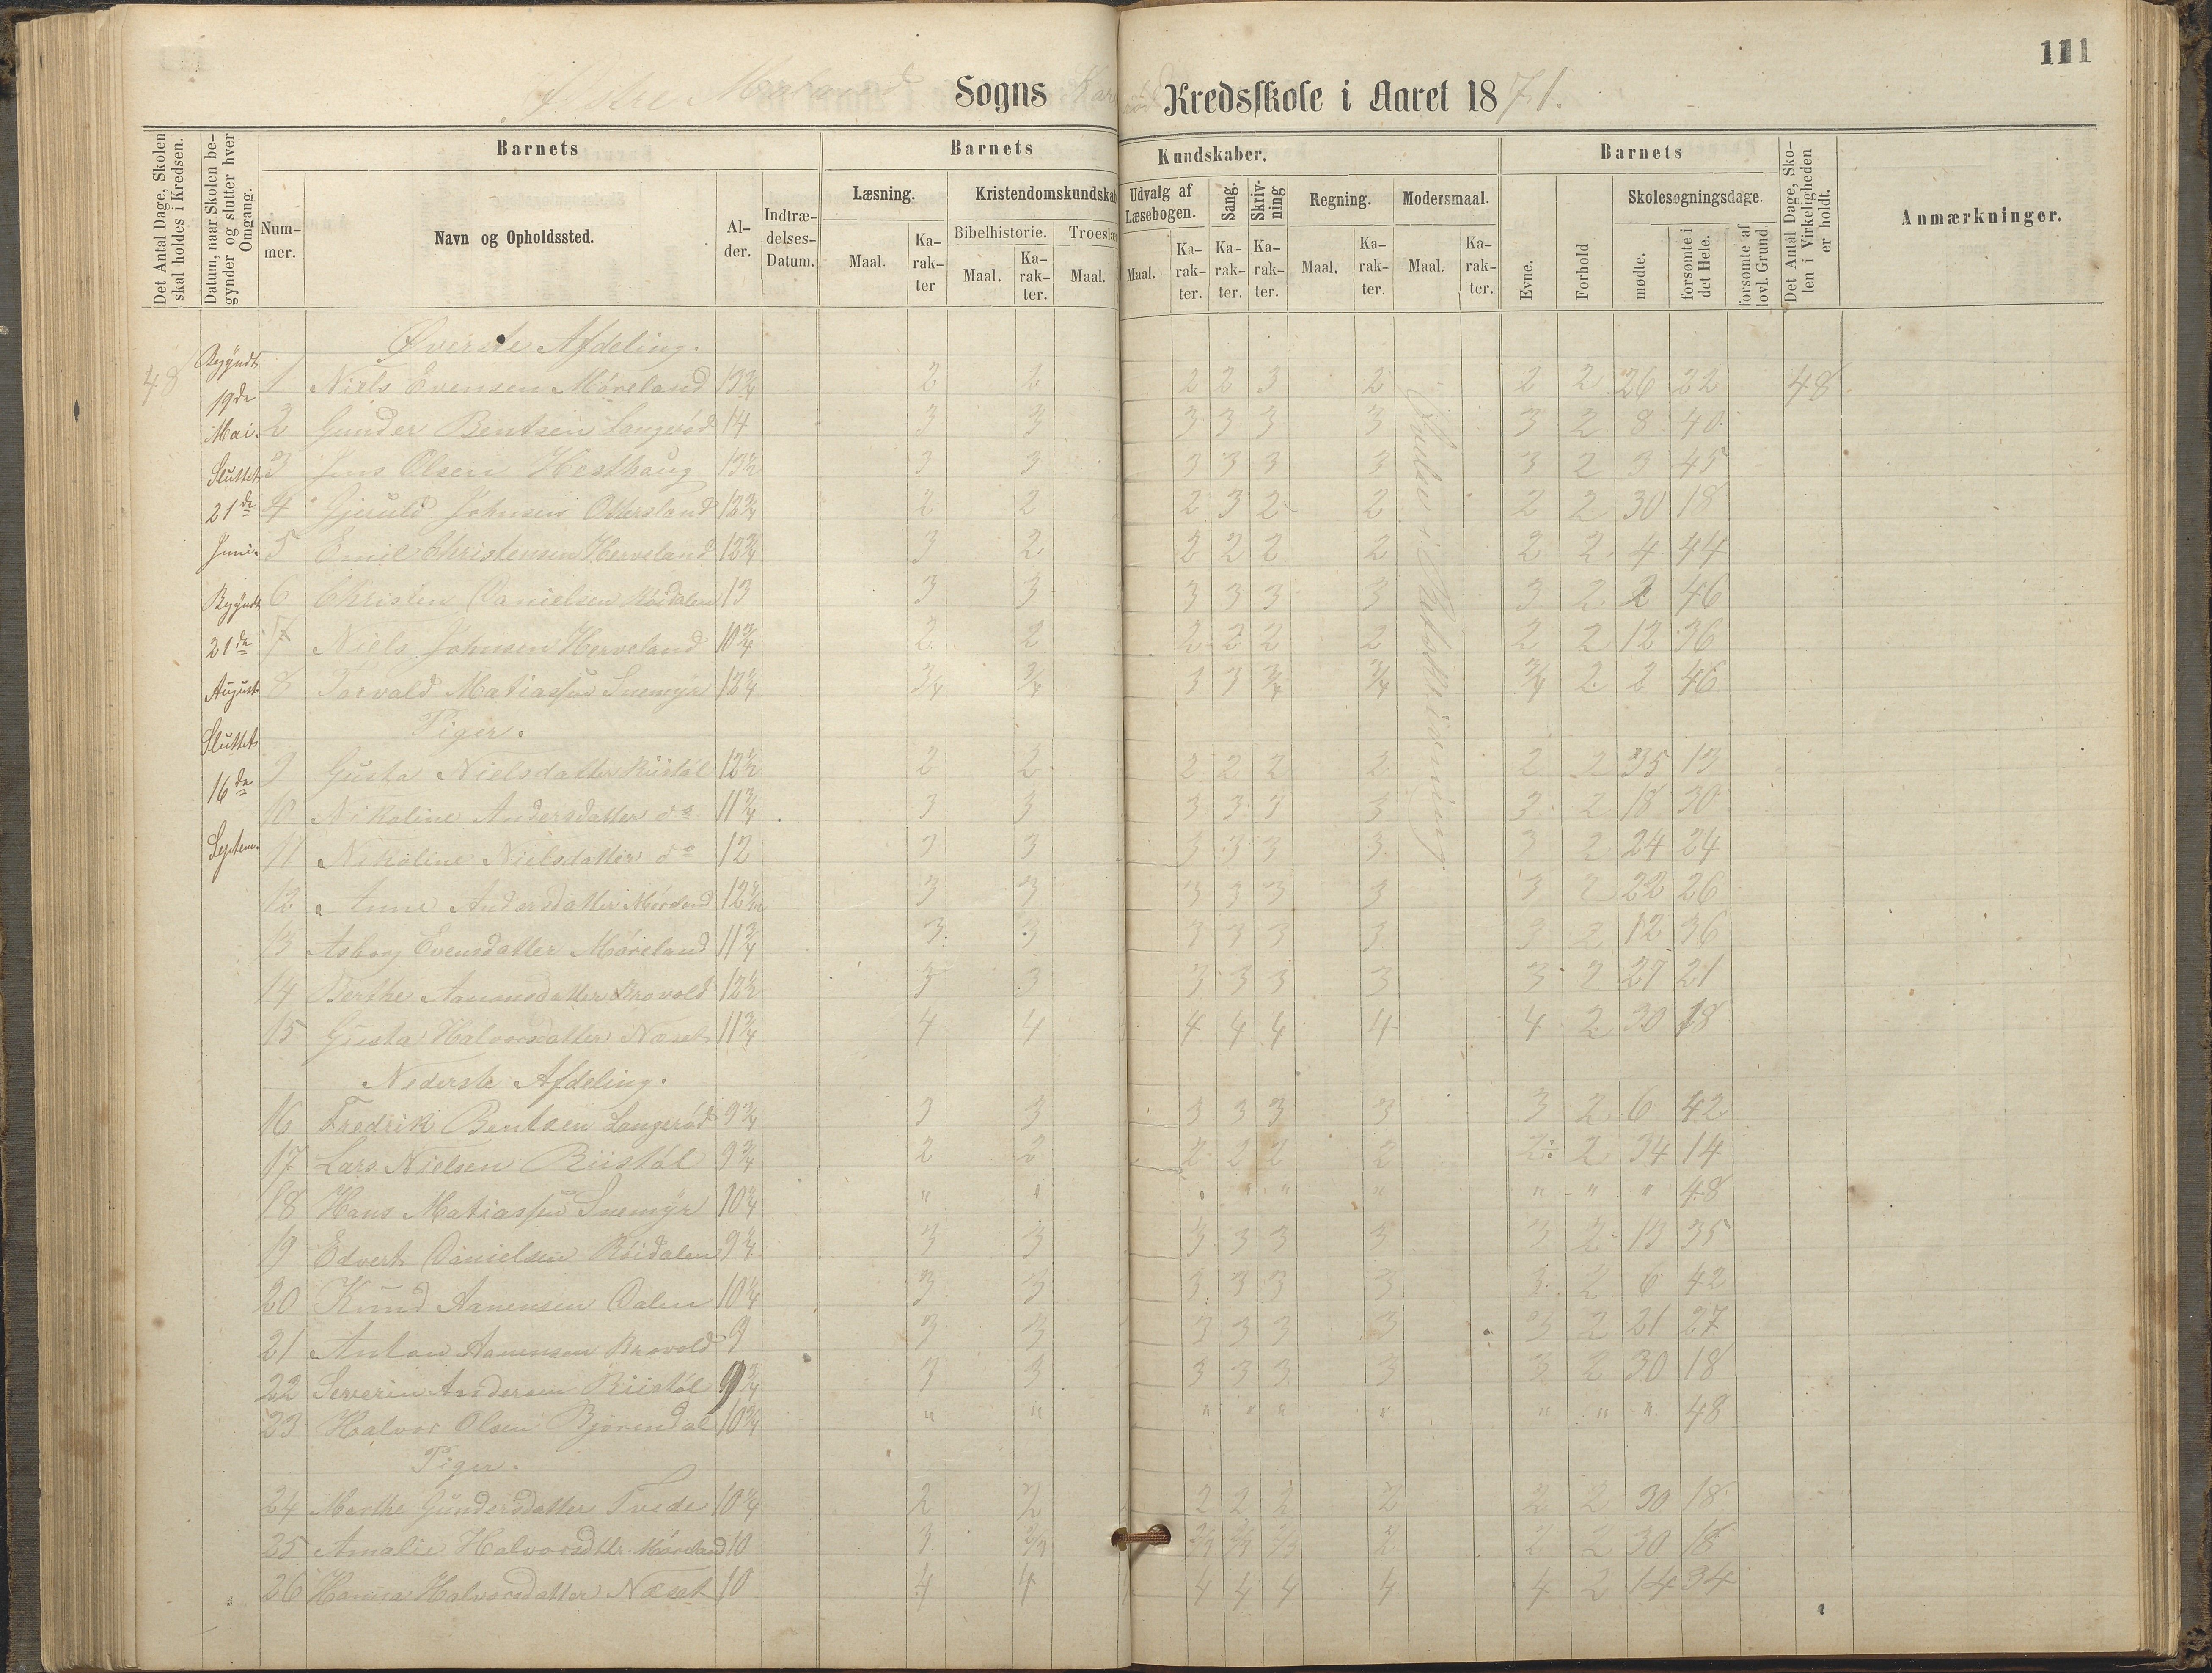 111
Østre Moland Sogns Kredsskole i Aaret 1871.
Det Antal Dage, Skolen skal holdes i Kredsen.
Datum, naar Skolen begynder og slutter hver Omgang.
Barnets
Nummer.
Navn og Opholdssted.
Alder.
Indtrædelses-Datum.
Barnets Kundskaber.
Læsning.
Maal.
Karakter
Kristendomskundskab
Bibelhistorie.
Maal.
Karakter.
Troeslære
Maal.
Udvalg af Læsebogen.
Maal.
Karakter.
Sang.
Karakter.
Skrivning
Karakter.
Regning.
Maal.
Karakter.
Modersmaal.
Maal.
Karakter.
Barnets
Evne.
Forhold
Skolesøgningsdage.
mødte.
forsømte i det Hele.
forsømte af lovl. Grund.
Det Antal Dage, Skolen i Virkeligheden er holdt.
Anmærkninger.
Begyndt
19de
Mai.
Sluttet
21de
Juni.
Begyndt
21de
August
Sluttet
16de
Septem.
Øverste Afdeling.
48 1 Niels Evensen Møreland 13 3/4 2 2 2 2 3 2 2 2 26 22 48.
2 Gunder Bentsen Langerød 14 3 3 3 3 3 3 3 2 8 40
3 Jens Olsen Hesthaug 13 1/2 3 3 3 3 3 3 3 2 3 45
4 Gjeruld Johnsen Ottersland 12 3/4 2 2 2 3 2 2 2 2 30 18
5 Emil Christensen Herveland 12 3/4 3 2 2 2 2 2 2 2 4 44
6 Christen Danielsen Røidalen 13 3 3 3 3 3 3 3 2 2 46
7 Niels Johnsen Herveland 10 3/4 2 2 2 2 2 2 2 2 12 36
8 Torvald Matiassen Snemyr 12 1/4 3/4 3/4 3 3 3/4 3/4 3/4 2 2 46
Piger.
9 Gusta Nielsdatter Riistøl 12 1/2 2 2 2 2 2 2 2 2 35 13
10 Nikoline Andersdatter do 11 3/4 3 3 3 3 3 3 3 2 18 30
11 Nikoline Nielsdatter do 12 3 3 3 3 3 3 3 2 24 24
12 Anne Andersdatter Møreland 12 1/2 3 3 3 3 3 3 3 2 22 26
13 Asborg Evensdatter Møreland 11 3/4 3 3 3 3 3 3 3 2 12 36
14 Berthe Aanonsdatter Brovold 12 1/2 3 3 3 3 3 3 3 2 27 21
15 Gusta Halvorsdatter Næset 11 3/4 4 4 4 4 4 4 4 2 30 18
Nederste Afdeling.
16 Fredrik Bentsen Langerød 9 3/4 3 3 3 3 3 3 3 2 6 42
17 Lars Nielsen Riistøl 9 3/4 2 2 2 2 2 2 2 2 34 14
18 Hans Matiassen Snemyr 10 1/4 " " " " " " " " " 48
19 Edvert Danielsen Røidalen 9 3/4 3 3 3 3 3 3 3 2 13 35
20 Knud Aanensen Dalen 10 1/4 3 3 3 3 3 3 3 2 6 42
21 Anton Aanensen Brovold 9 3 3 3 3 3 3 3 2 21 27
22 Severin Andersen Riistøl 9 3/4 3 3 3 3 3 3 3 2 30 18
23 Halvor Olsen Bjørendal 10 3/4 " " " " " " " " " 48
Piger.
24 Marthe Gundersdatter Tvede 10 1/4 2 2 2 2 2 2 2 2 30 18
25 Amalie Halvorsdtr Møreland 10 3 2/3 2/3 2/3 2/3 2 2 2 30 18
26 Hanna Halvorsdatter Næset 10 4 4 4 4 4 4 4 2 14 34